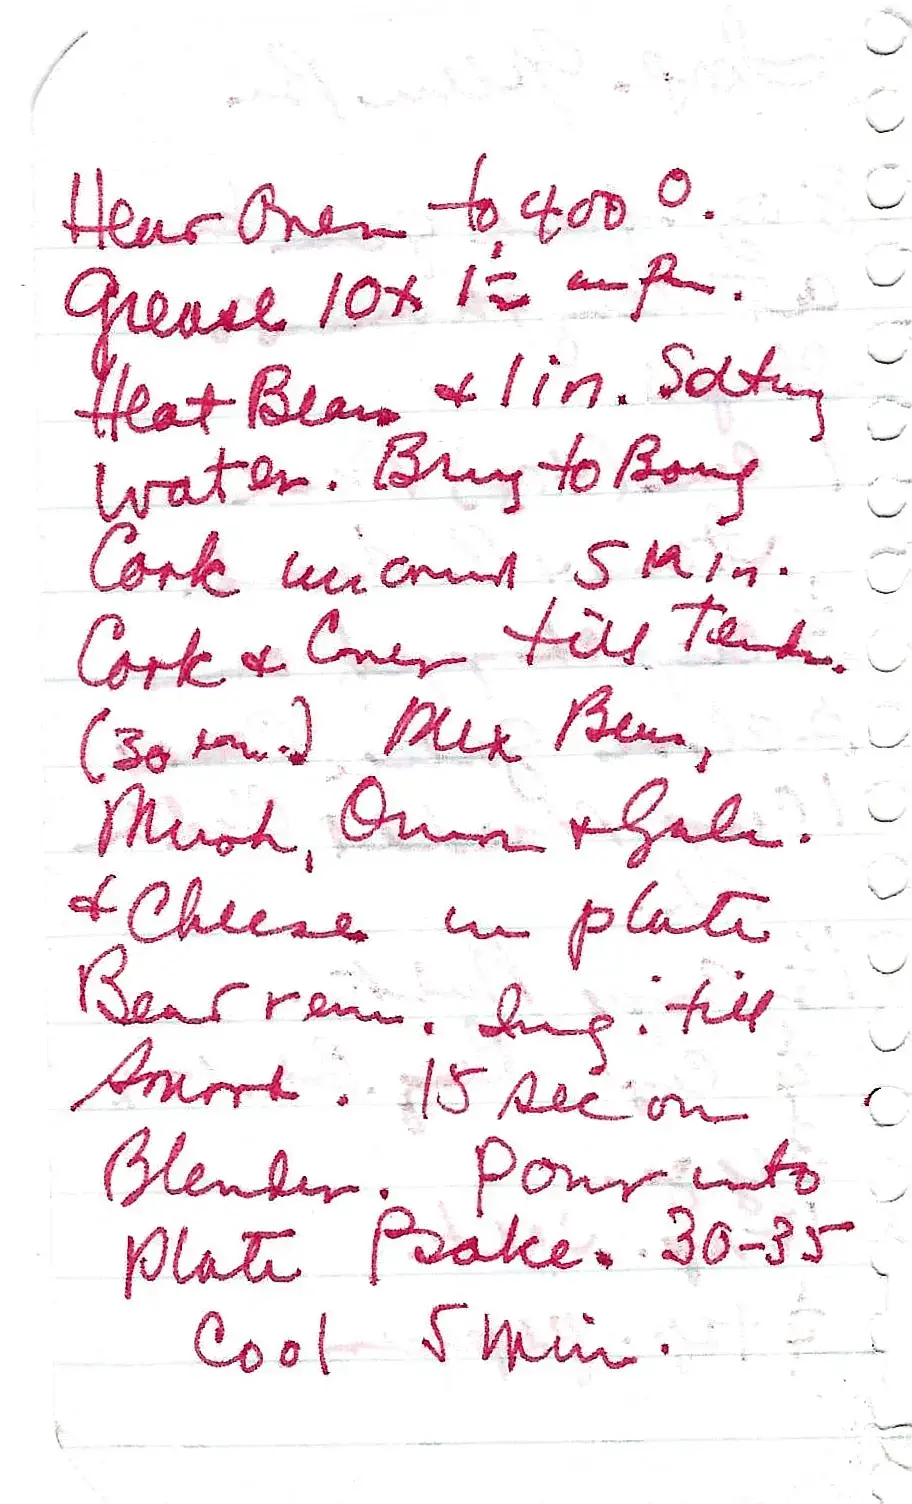 Heat Oven to 400°.
Grease 10 x 1½ in pn.
Heat Beans & 1 in. Salting
Water. Bring to Boing
Cook uncovred 5 Min.
Cook & Cover till Tender.
(30 min.) Mix Beans,
Mush, Onion & Garlic.
& Cheese in plate
Beat rem. Ing. till
Smooth. 15 sec on
Blender. Pour into
plate Bake. 30-35
Cool 5 Min.